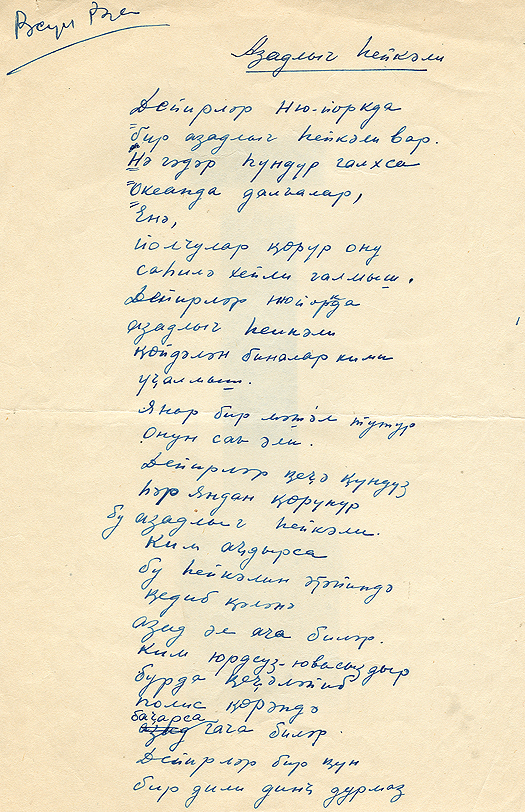 Рәсул Рза
Азадлығ һейкәли
Дейирләр Ню-йоркда
бир азадлығ һейкәли вар.
Нә гәдәр һүндүр галхса
Океанда далғалар,
Енә,
йолчулар ҝөрүр ону
саһилә хейли галмыш.
Дейирләр нюйоркда
азадлығ һейкәли
ҝөйдәлән биналар кими
уҹалмыш.
Янар бир мәш'әл тутур
онун сағ әли.
Дейирләр ҝеҹә ҝүндүз
һәр яндан ҝөрүнүр
бу азадлығ һейкәли.
Ким аҹдырса
бу һейкәлин әтәйиндә
ҝедиб ҝәләнә
азад әл ача биләр.
Ким юрдсуз-ювасыздыр
бурда ҝеҹәләйиб
полис ҝөрәндә
баҹарса гача биләр.
Дейирләр бир ҝүн
бир дили динҹ дурмаз